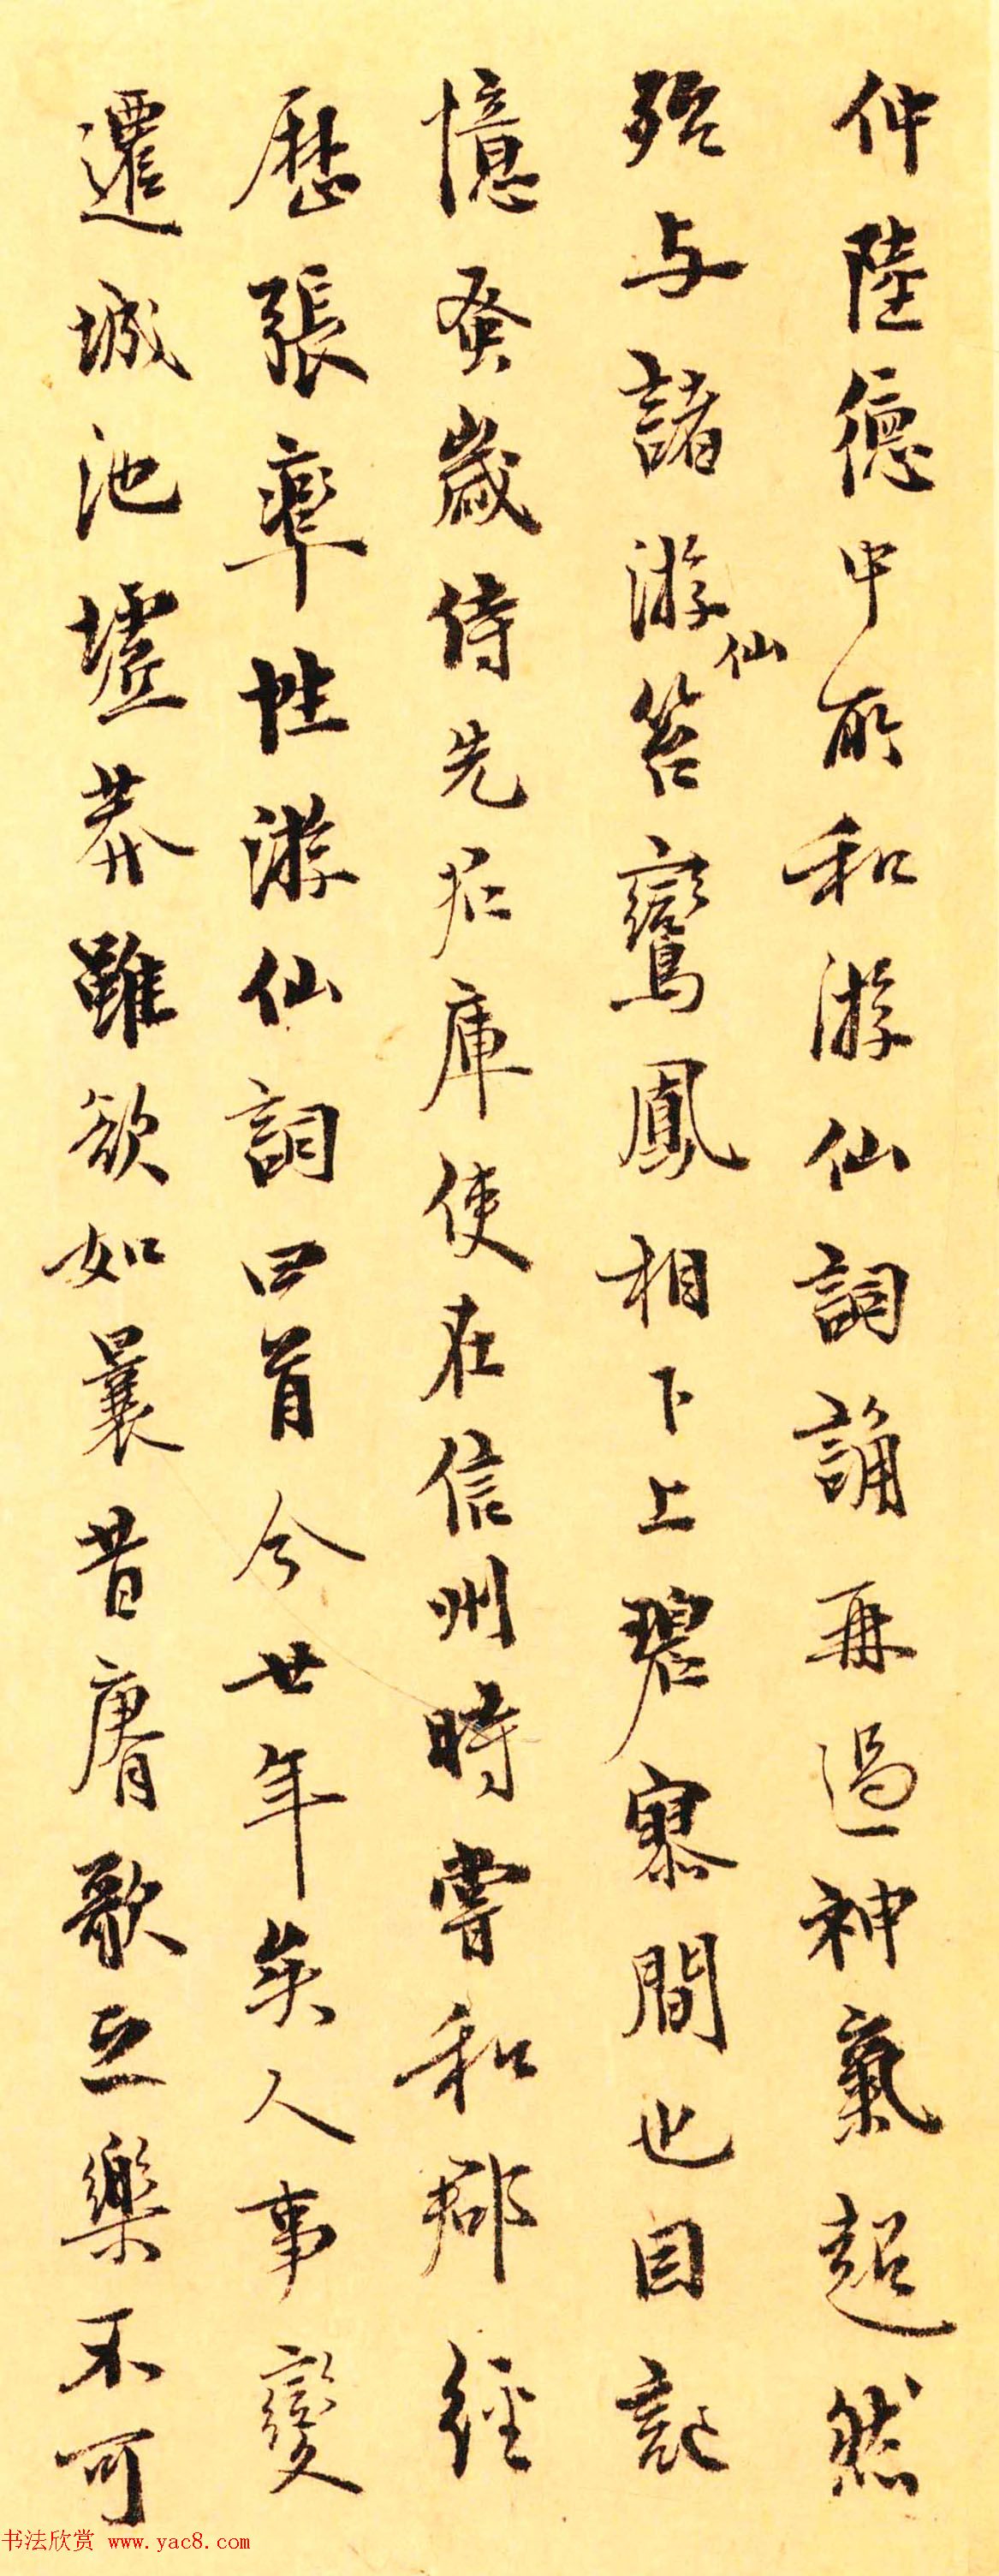 仲陸德中所和游仙詞誦再過神氣超然
殆与諸游仙笞鸞鳳相下上碧寥間也因記
憶蚤歲侍先君庫使在信州時嘗和郡經
歷張率性游仙詞四首今廿年矣人事變
遷城池墟莽雖欲如曩昔賡歌之樂不可
书法欣赏 www.yac8.com